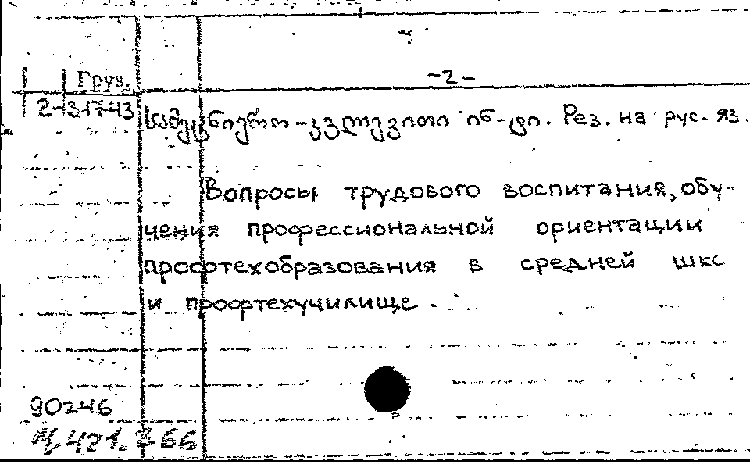 -2-
Груз.
2-31743
სამეცნიერო-კვლევითი ინ-ტი. Рез. на рус. яз.
Вопросы трудового воспитания, обу-
чения профессиональной ориентации
профтехобразования в средней шкс
и профтехучилище.
90246